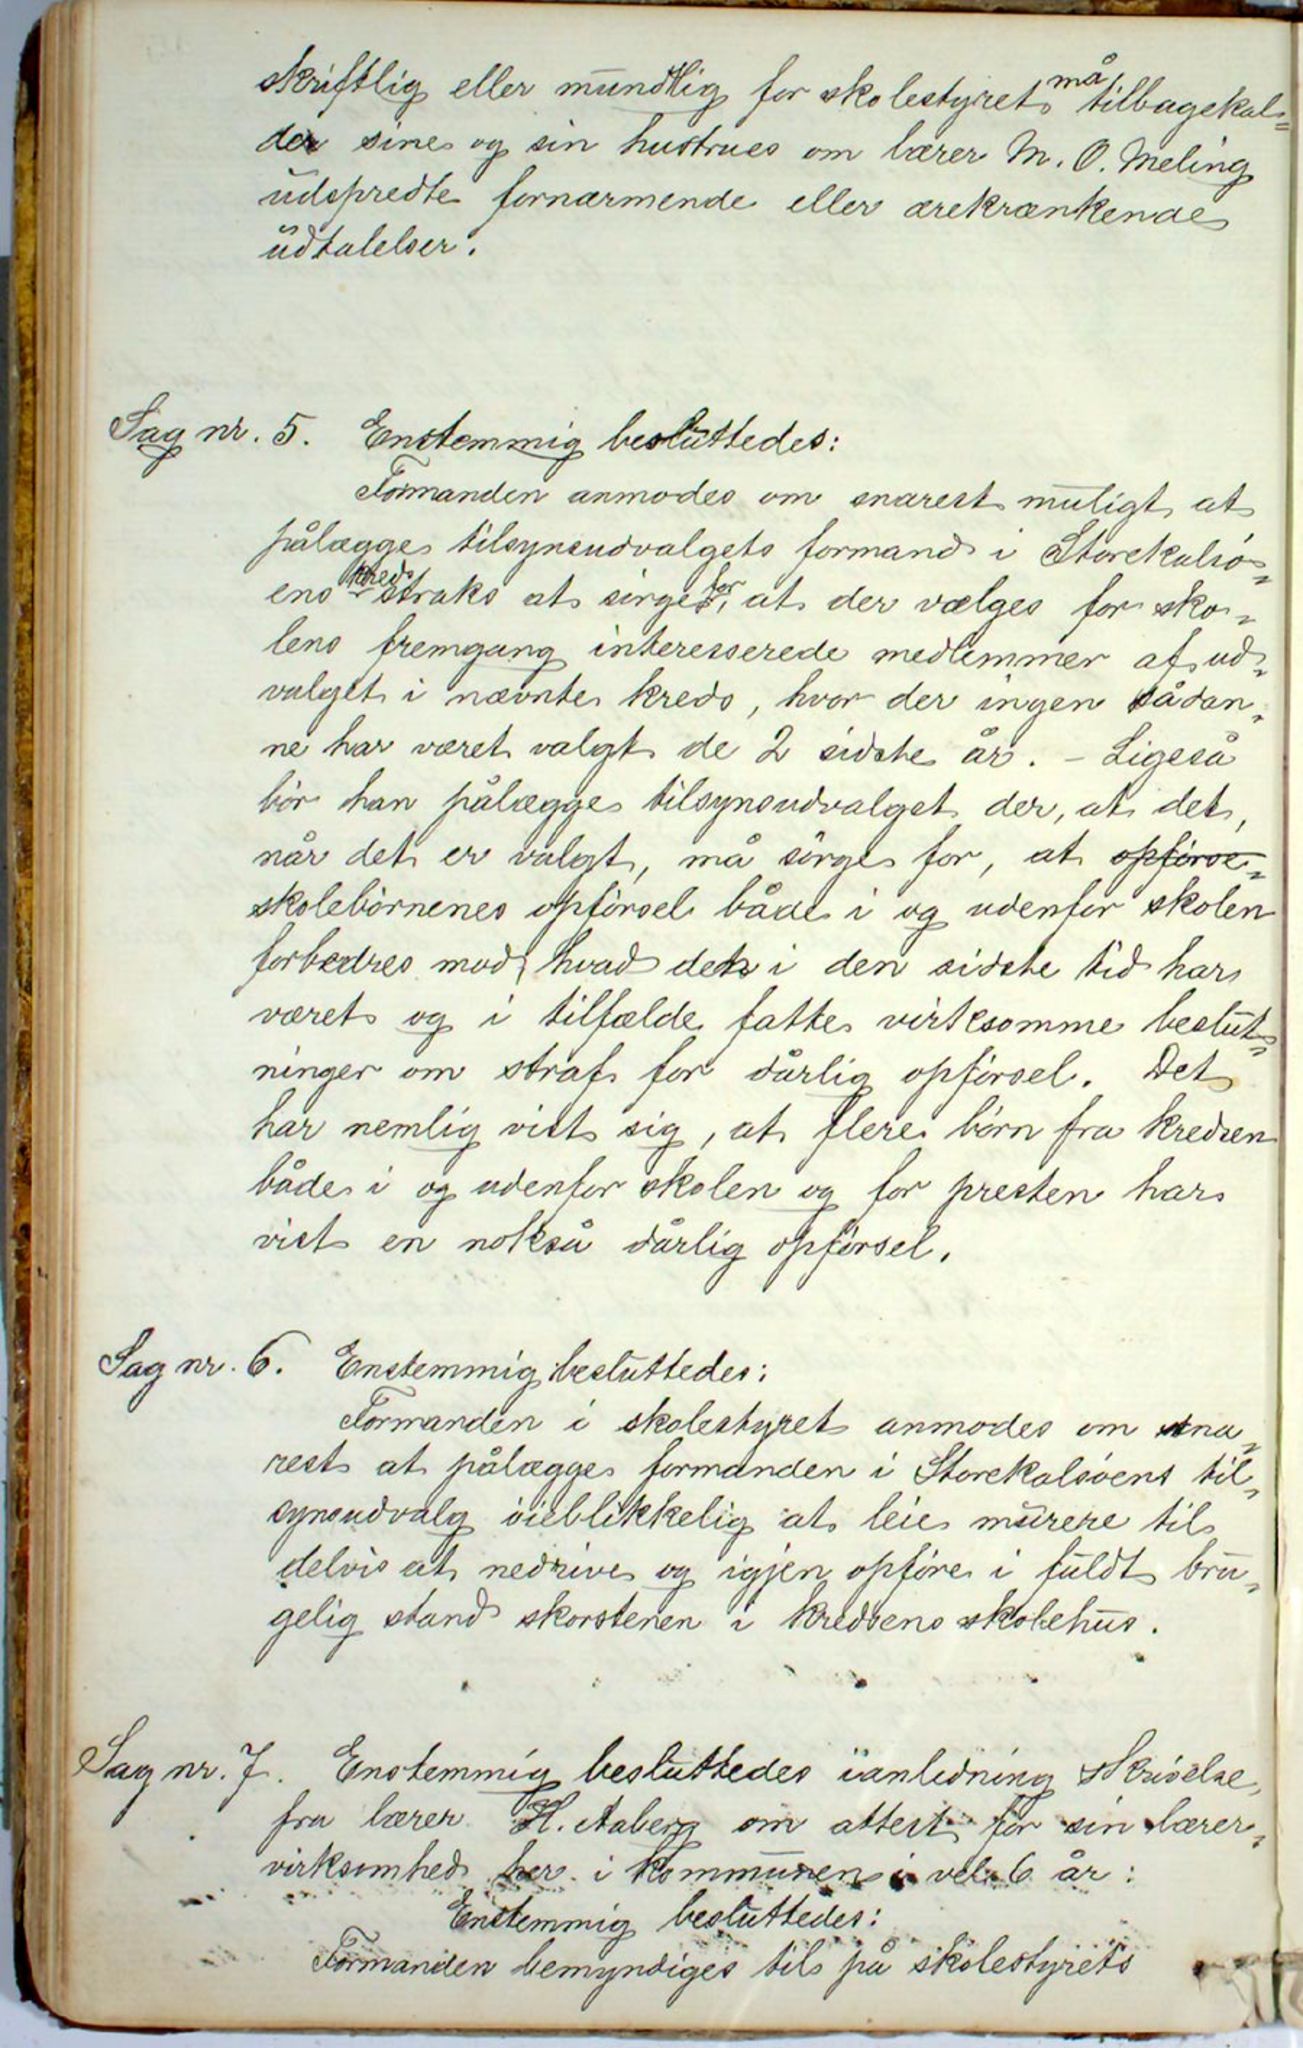 skriftlig eller mundtlig for skolestyret må tilbagekal-
der sine og sin hustrues om lærer M. O. Meling
udspredte fornærmende eller ærekrænkende
udtalelser.
Sag nr. 5. Enstemmig besluttedes:
Formanden anmodes om snarest muligt at
pålægge tilsynsudvalgets formand i Storekalsö-
ens kreds straks at sörge for, at der vælges for sko-
lens fremgang interesserede medlemmer af ud-
valget i nævnte kreds, hvor der ingen sådan-
ne har været valgt de 2 sidste år. - Ligeså
bör han pålægge tilsynsudvalget der, at det,
når det er valgt, må sörge for, at opförse-
skolebörnenes opförsel både i og udenfor skolen
forbedres mod, hvad den i den sidste tid har
været og i tilfælde fatte virksomme beslut-
ninger om straf for dårlig opförsel. Det
har nemlig vist sig, at flere börn fra kredsen
både i og udenfor skolen og for presten har
vist en nokså dårlig opförsel.
Sag nr. 6. Enstemmig besluttedes:
Formanden i skolestyret anmodes om sna-
rest at pålægge formanden i Storekalsöens til-
synsudvalg öieblikkelig at leie murere til
delvis at nedrive og igjen opföre i fuldt bru-
gelig stand skorstenen i kredsens skolehus.
Sag nr. 7. Enstemmig besluttedes ianledning Skrivelse
fra lærer H. Aaberg om attest for sin lærer-
virksomhed her i kommunen i vel 6 år:
Enstemmig besluttedes:
Formanden bemyndiges til på skolestyrets